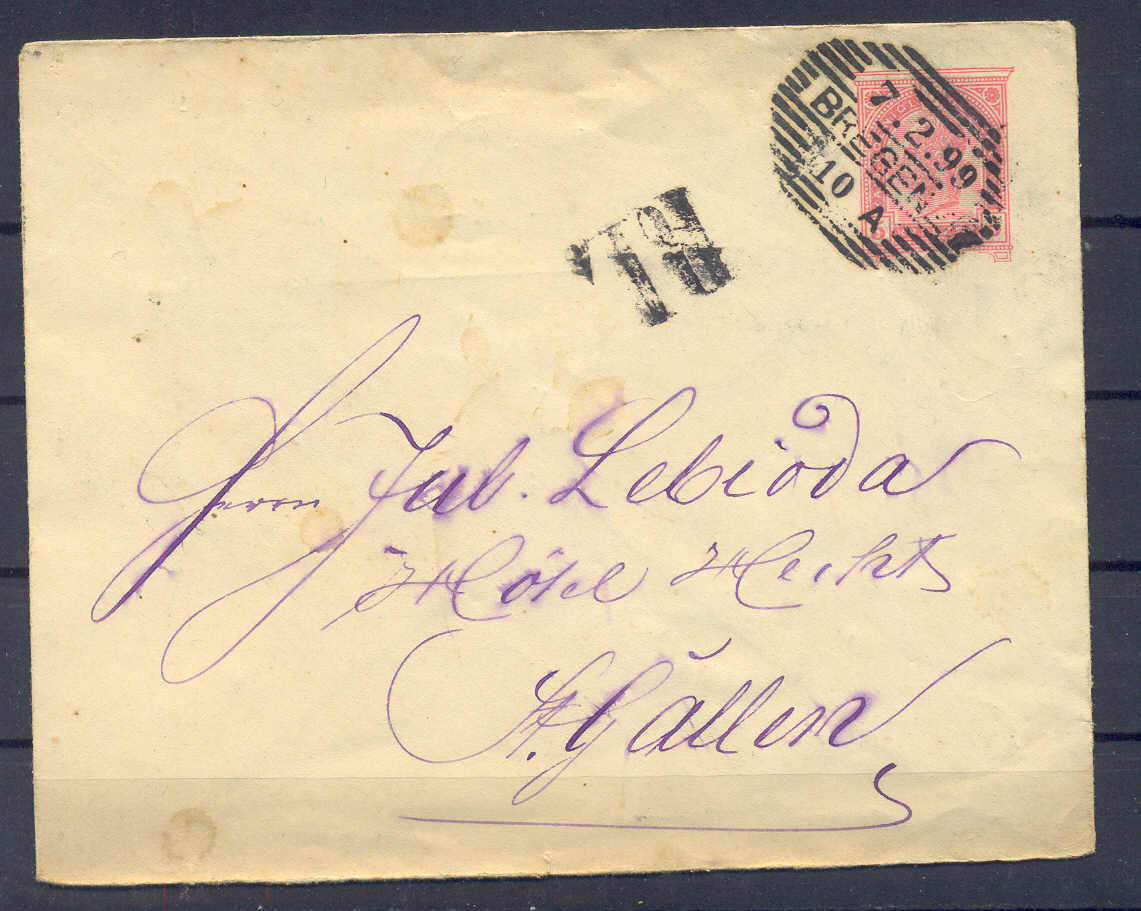 7. 2. 99
BREGENZ
10 A
Herrn Jul. Lebioda
Hôtel Hecht
St. Gallen